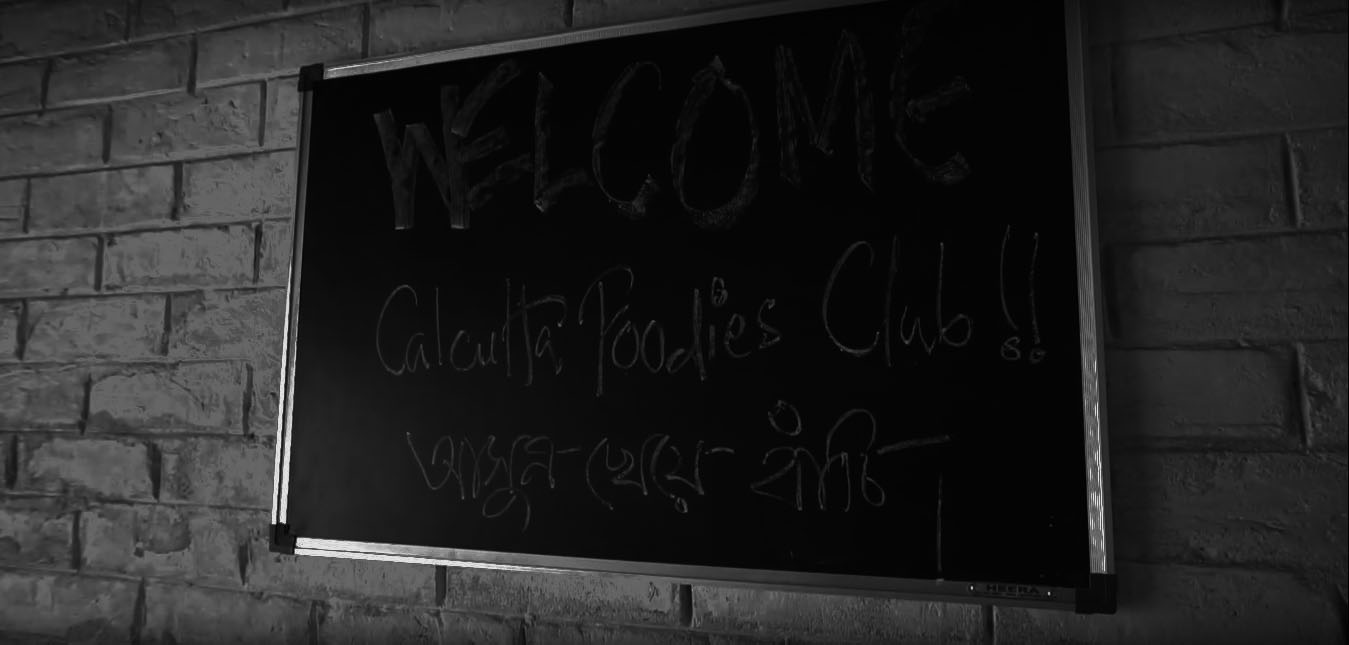 WELCOME
Calcutta Foodies Club !!
আসুন - খেয়ে - বাঁচি ।
HEERA